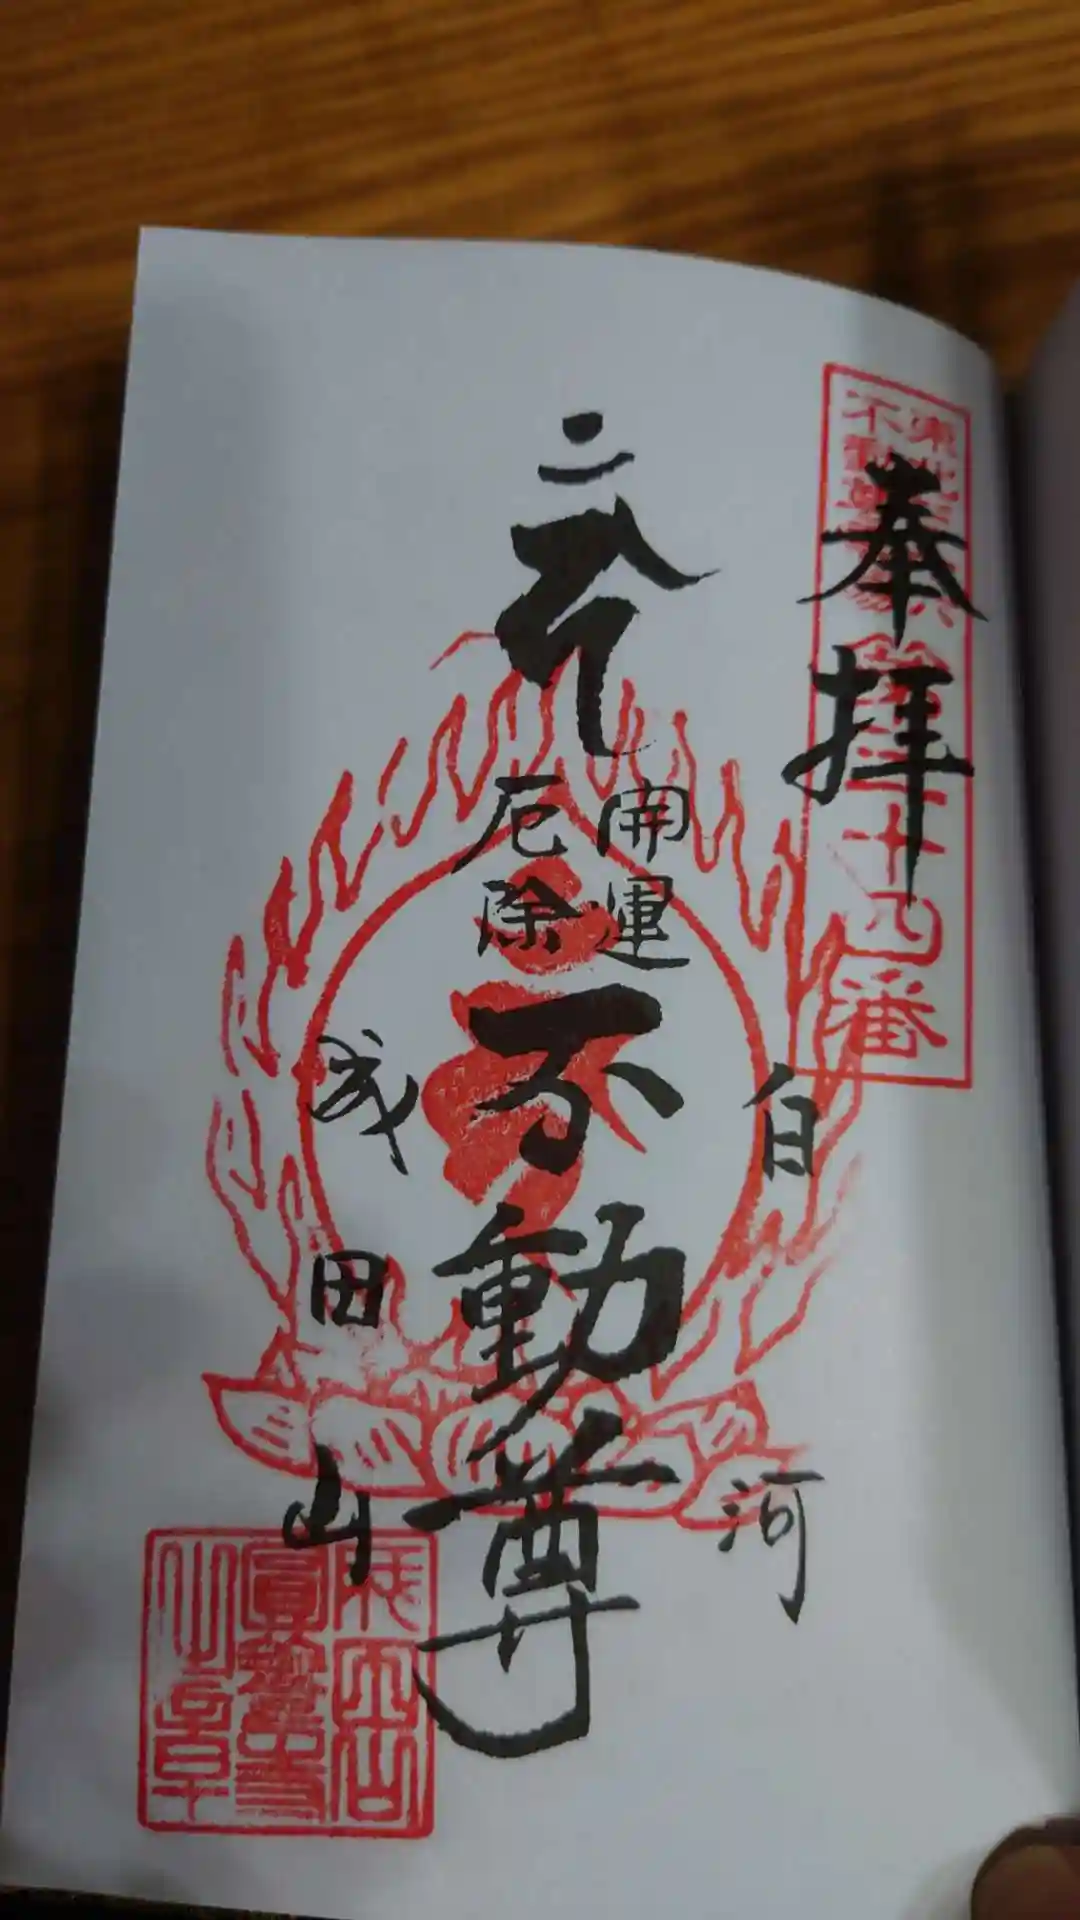 奉拝
東北三十六
不動尊霊場
第二十四番
開運
厄除
不動尊
白河
成田山